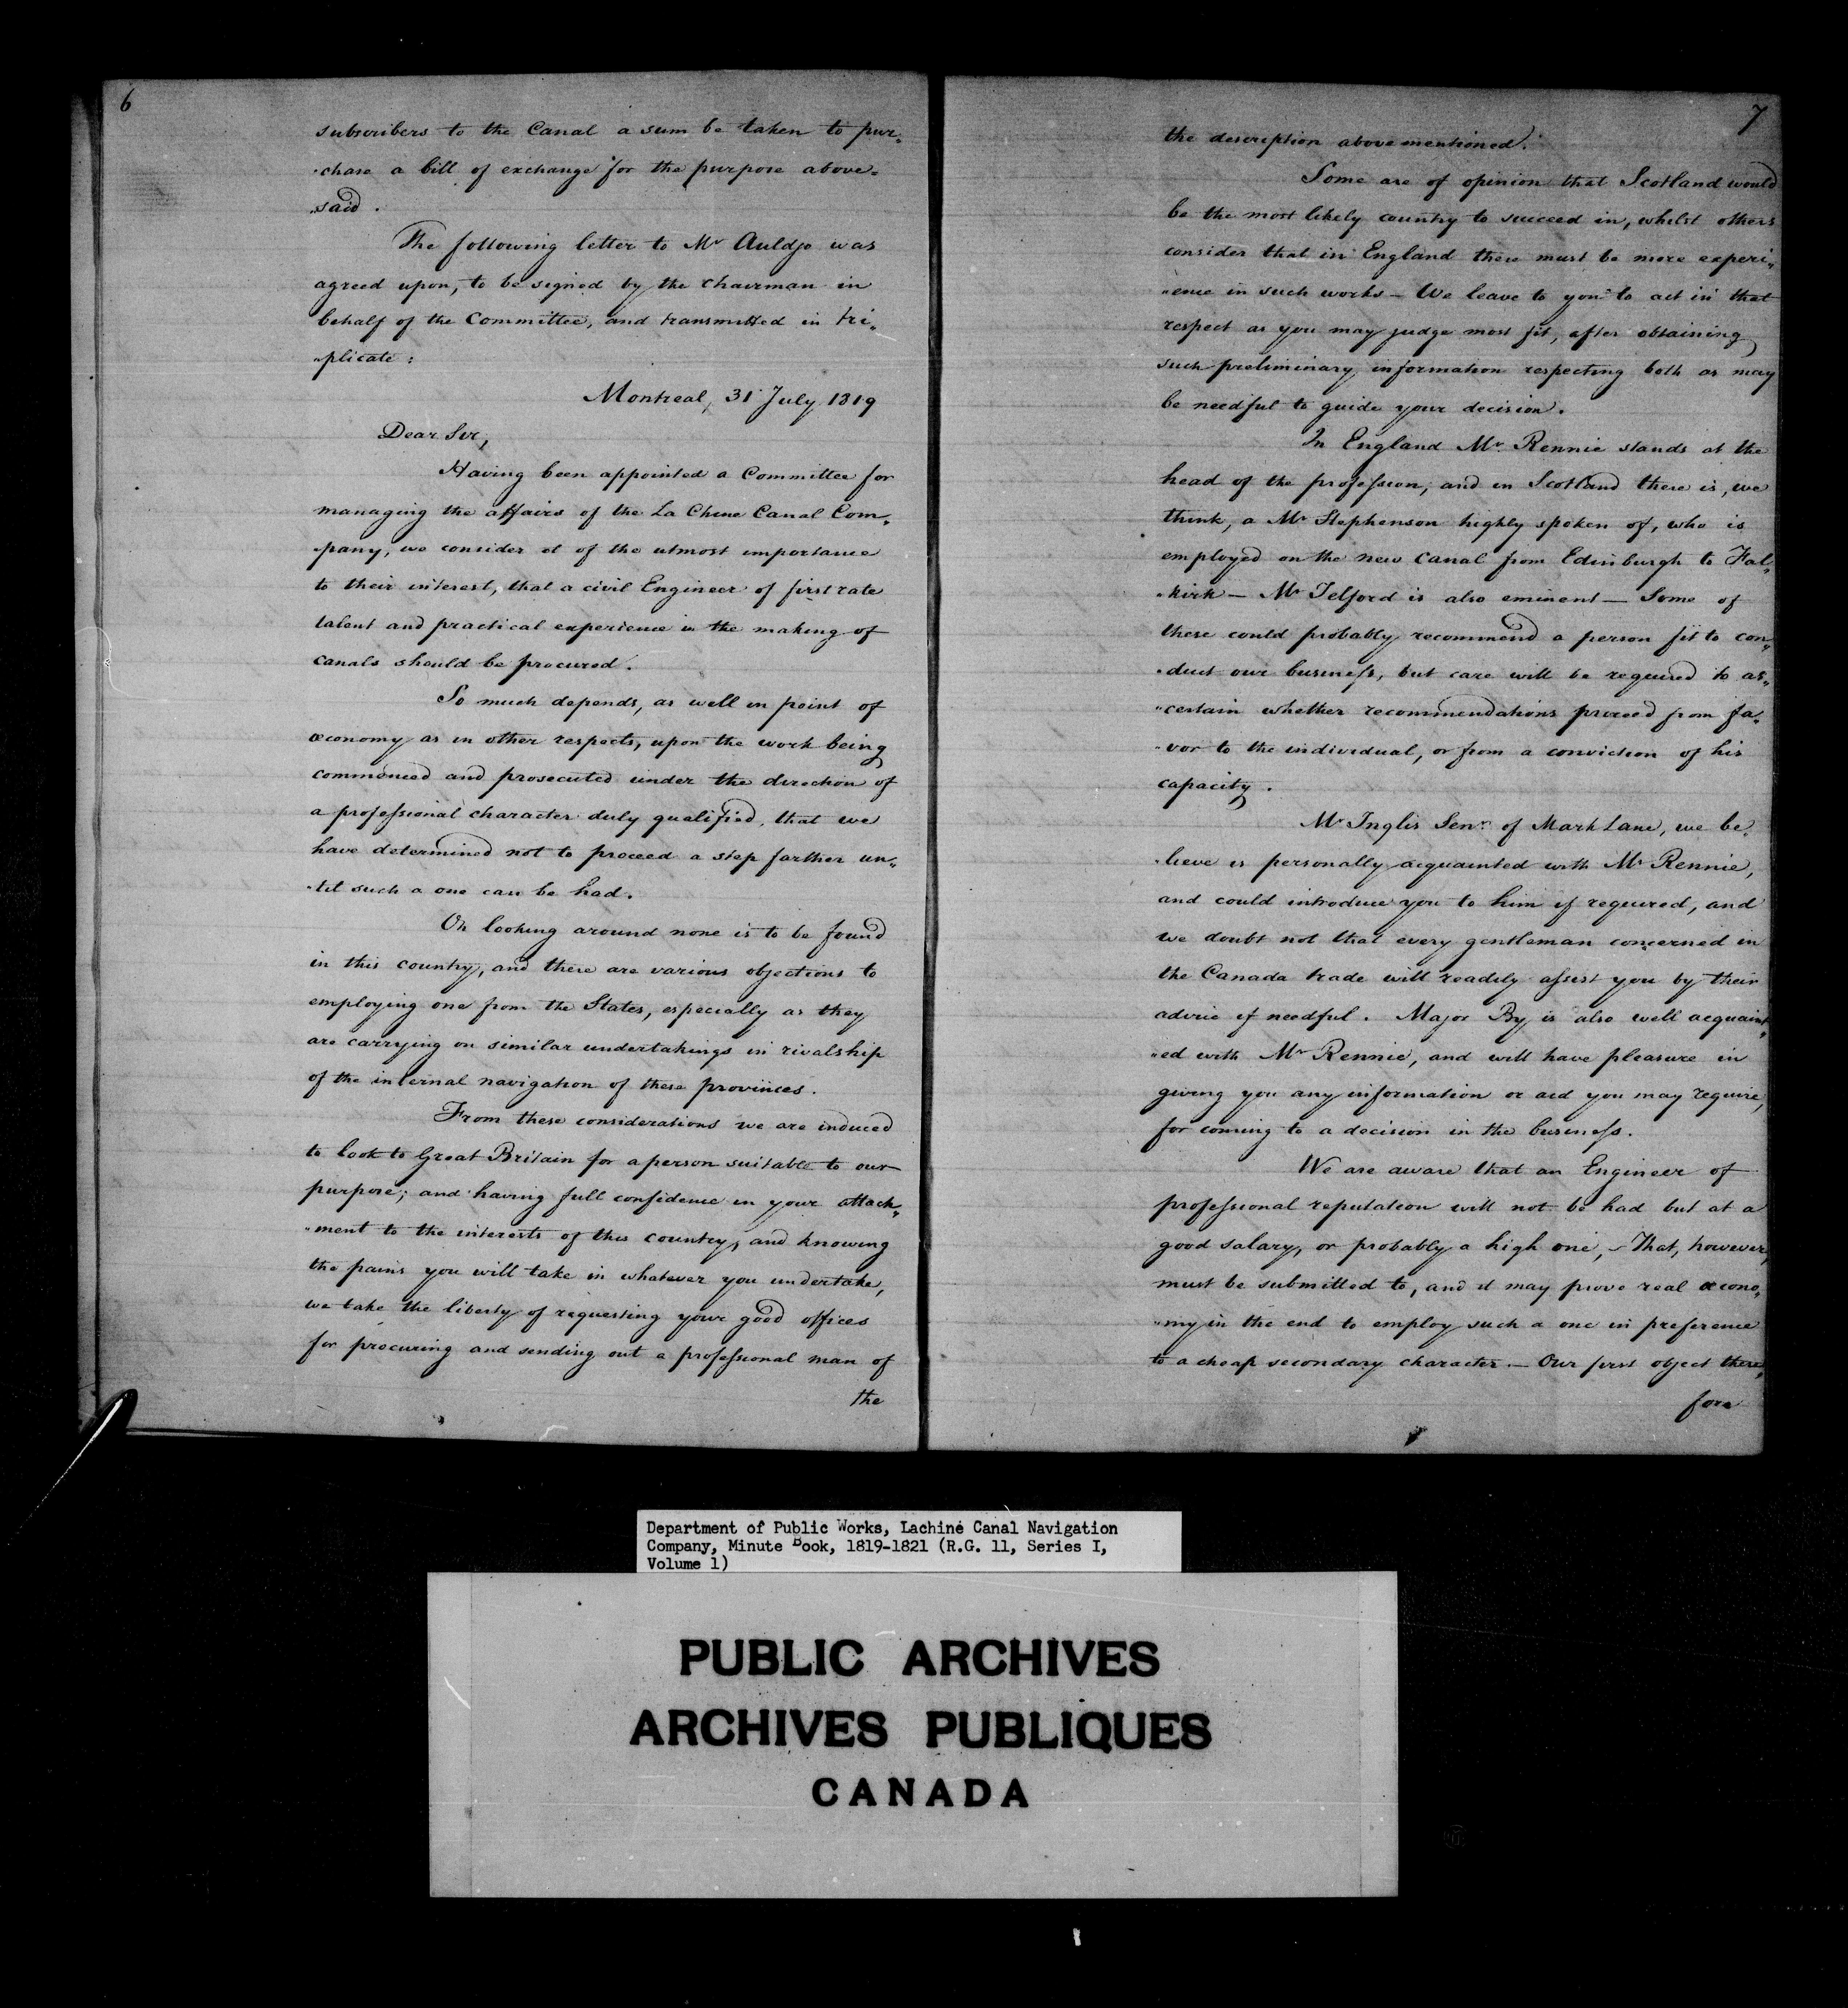 6
subscribers to the Canal a sum be taken to pur„
„chase a bill of exchange for the purpose above=
„said.
The following letter to Mr Auldjo was
agreed upon, to be signed by the chairman in
behalf of the Committee, and transmitted in tri„
„plicate:
Montreal, 31 July 1819
Dear Sir,
Having been appointed a Committee for
managing the affairs of the La Chine Canal Com„
„pany, we consider it of the utmost importance
to their interest, that a civil Engineer of first rate
talent and practical experience in the making of
canals should be procured.
So much depends, as well in point of
œconomy as in other respects, upon the work being
commenced and prosecuted under the direction of
a professional character duly qualified, that we
have determined not to proceed a step farther un„
„til such a one can be had.
On looking around none is to be found
in this country, and there are various objections to
employing one from the States, especially as they
are carrying on similar undertakings in rivalship
of the internal navigation of these provinces.
From these considerations we are induced
to look to Great Britain for a person suitable to our
purpose; and having full confidence in your attach„
„ment to the interests of this country, and knowing
the pains you will take in whatever you undertake,
we take the liberty of requesting your good offices
for procuring and sending out a professional man of
the
7
the description above mentioned.
Some are of opinion that Scotland would
be the most likely country to succeed in, whilst others
consider that in England there must be more experi„
„ence in such works – We leave to you to act in that
respect as you may judge most fit, after obtaining
such preliminary information respecting both as may
be needful to guide your decision.
In England Mr. Rennie stands at the
head of the profession, and in Scotland there is, we
think, a Mr Stephenson highly spoken of, who is
employed on the new canal from Edinburgh to Fal„
„kirk – Mr Telford is also eminent – Some of
these could probably recommend a person fit to con„
„duct our business, but care will be required to as„
„certain whether recommendations proceed from fa„
„vor to the individual, or from a conviction of his
capacity.
Mr Inglis Senr. of Mark Lane, we be„
„lieve is personally acquainted with Mr Rennie,
and could introduce you to him if required, and
we doubt not that every gentleman concerned in
the Canada trade will readily assist you by their
advice if needful. Major By is also well acquaint„
„ed with Mr Rennie, and will have pleasure in
giving you any information or aid you may require,
for coming to a decision in the business.
We are aware that an Engineer of
professional reputation will not be had but at a
good salary, or probably a high one, – That, however,
must be submitted to, and it may prove real œcono„
„my in the end to employ such a one in preference
to a cheap secondary character. – Our first object there„
fore
Department of Public Works, Lachine Canal Navigation
Company, Minute Book, 1819-1821 (R.G. 11, Series I,
Volume 1)
PUBLIC ARCHIVES
ARCHIVES PUBLIQUES
CANADA